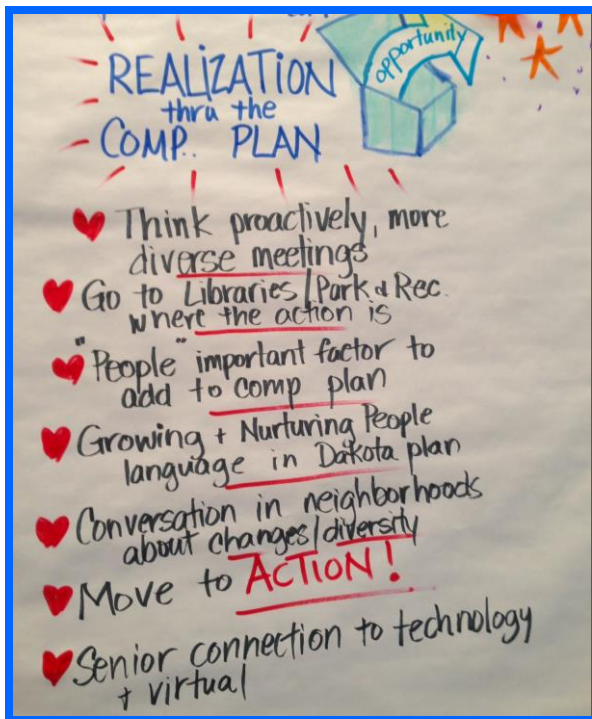 opportunity
REALIZATION
thru the
COMP. PLAN
Think proactively, more
diverse meetings
Go to Libraries/Park & Rec.
where the action is
"People" important factor to
add to comp plan
Growing + Nurturing People
language in Dakota plan
Conversation in neighborhoods
about changes/diversity
Move to ACTION!
Senior connection to technology
+ virtual